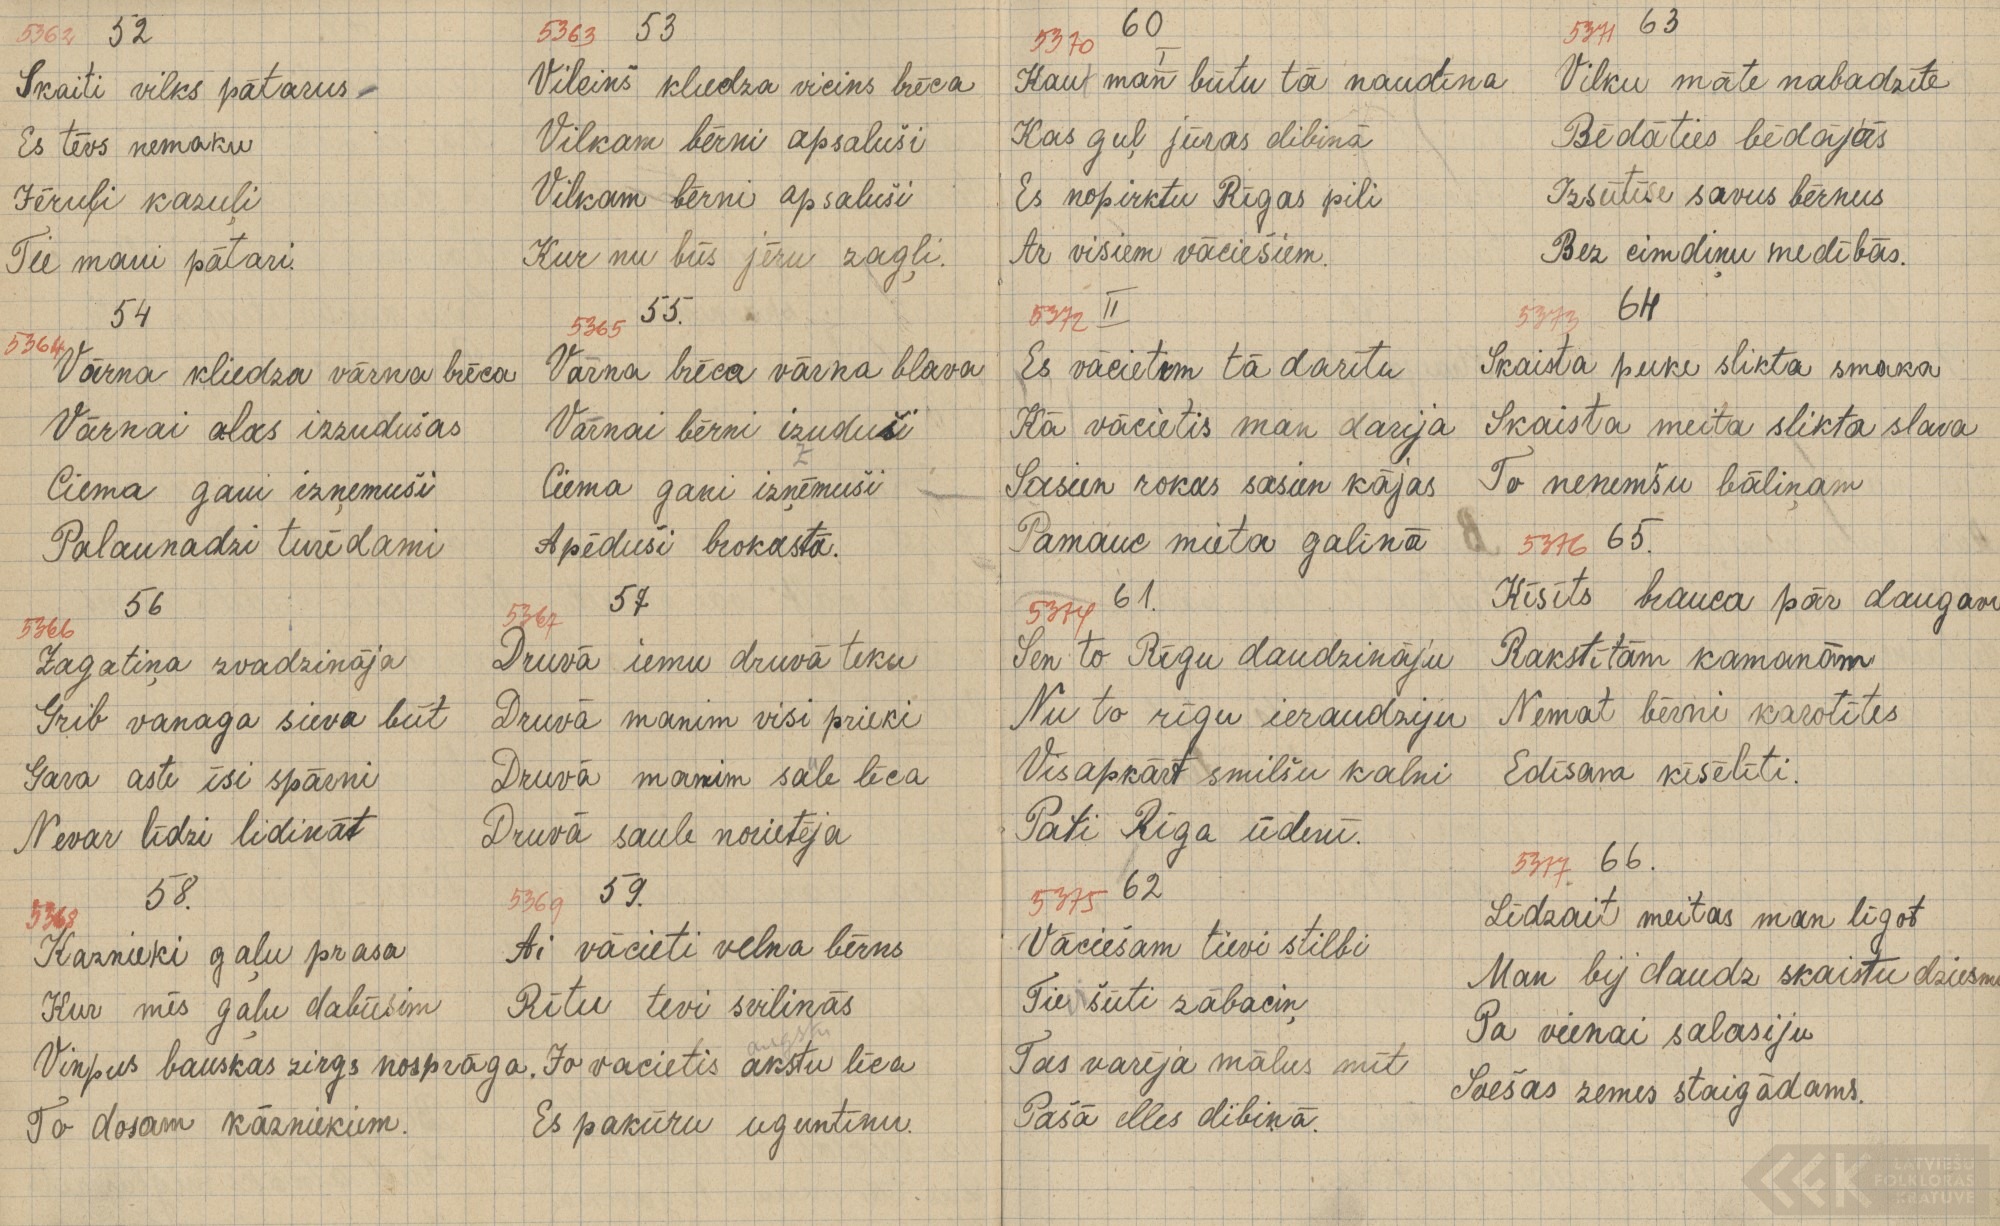 5362 52
Skaiti vilks pātarus
Es tēvs nemaku
Jēruļi kazuļi
Tie mani pātari.
5363 53
Vilciņš kliedza viciņs brēca
Vilkam bērni apsaluši
Vilkam bērni apsaluši
Kur nu būs jēru zagļi.
54
5364
Vārna kliedza vārna brēca
Vārnai olas izzudušas
Ciema gani izņemuši
Palaunadzi turēdami
5365 55.
Vārna brēca vārna blava
Vārnai bērni izuduši
z
Ciema gani izņēmuši
Apēduši brokastā.
56
5366
Zagatiņa zvadzināja
Grib vanaga sieva būt
Gara aste īsi spārni
Nevar līdzi lidināt
5367 57
Druvā iemu druvā teku
Druvā manim visi prieki
Druvā manim saule lēca
Druvā saule norietēja
58.
5368
Kaznieki gaļu prasa
Kur mēs gaļu dabūsim
Viņpus bauskas zirgs nosprāga.
To dosam kāzniekiem.
5369 59.
Ai vācieti velna bērns
Rītu tevi svilinās
augstu
Jo vacietis akstu lēca
Es pakūru uguntiņu.
5370 60
I
Kau man būtu tā naudiņa
Kas guļ jūras dibinā
Es nopirktu Rīgas pili
Ar visiem vāciešiem.
5372 II
Es vācietem tā darītu
Kā vācietis man darija
Sasien rokas sasien kājas
Pamauc mieta galiņā
5374 61.
Sen to Rīgu daudzināju
Nu to rīgu ieraudziju
Visapkārt smilšu kalni
Pati Rīga ūdenī.
5375 62
Vāciešam tievi stilbi
Tie šūti zābaciņ
Tas varēja mālus mīt
Pašā elles dibiņā.
5371 63
Vilku māte nabadzīte
Bēdāties bēdājās
Izsūtīse savus bērnus
Bez cimdiņu medībās.
5373 64
Skaista puķe slikta smaka
Skaista meita slikta slava
To nenemšu bāliņam
5376 65.
Ķīsīts brauca pār daugavu
Rakstītām kamanām
Nemat bērni karotītes
Edīsana ķīsēlīti.
5377 66.
Līdzait meitas man līgot
Man bij daudz skaistu dziesmu
Pa vienai salasiju
Svešas zemes staigādams.
LATVIEŠU
FOLKLORAS
KRATUVE